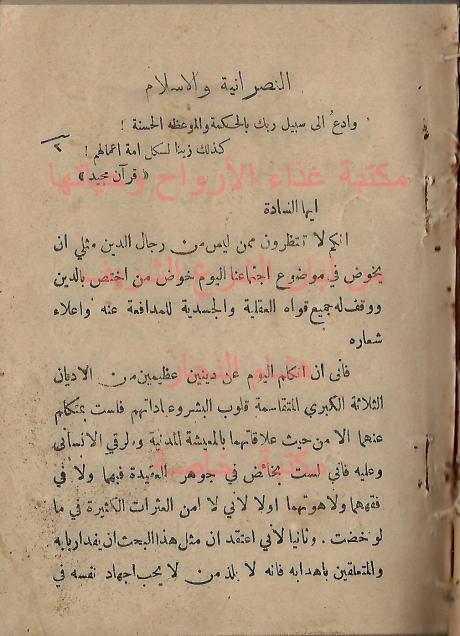 النصرانية والاسلام
وادعُ الى سبيل ربك بالحكمة والموعظه الحسنة !
كذلك زينا لسكل امة اعمالهم !
٢
« قرآن مجيد »
مكتبة غذاء الأرواح
ايها السادة
انكم لا تنتظرون ممن ليس من رجال الدين مثلي ان
يخوض في موضوع اجتماعنا اليوم خوض من اختص بالدين
ووقف له جميع قواه العقلية والجسدية للمدافعة عنه واعلاء
شعاره
فأنى ان اتكلم اليوم عن دينين عظيمين من الاديان
هشام النجار
الثلاثة الكبرى المتقاسمة قلوب البشر وعباداتهم فلست بمتكلم
عنهما الا من حيث علاقاتهما بالمعيشة المدنية والرقي الانسانى
مكتبة خاصة
وعليه فأني لست بخائض في جوهر العقيدة فيهما ولا في
فقههما ولا هوتهما اولا لاني لا امن العثرات الكثيرة في ما
لو خضت . وثانيا لأني اعتقد ان مثل هذا البحث ان يفد اربابه
والمتعلقين باهدابه فانه لا يلذ من لا يحب اجهاد نفسه في